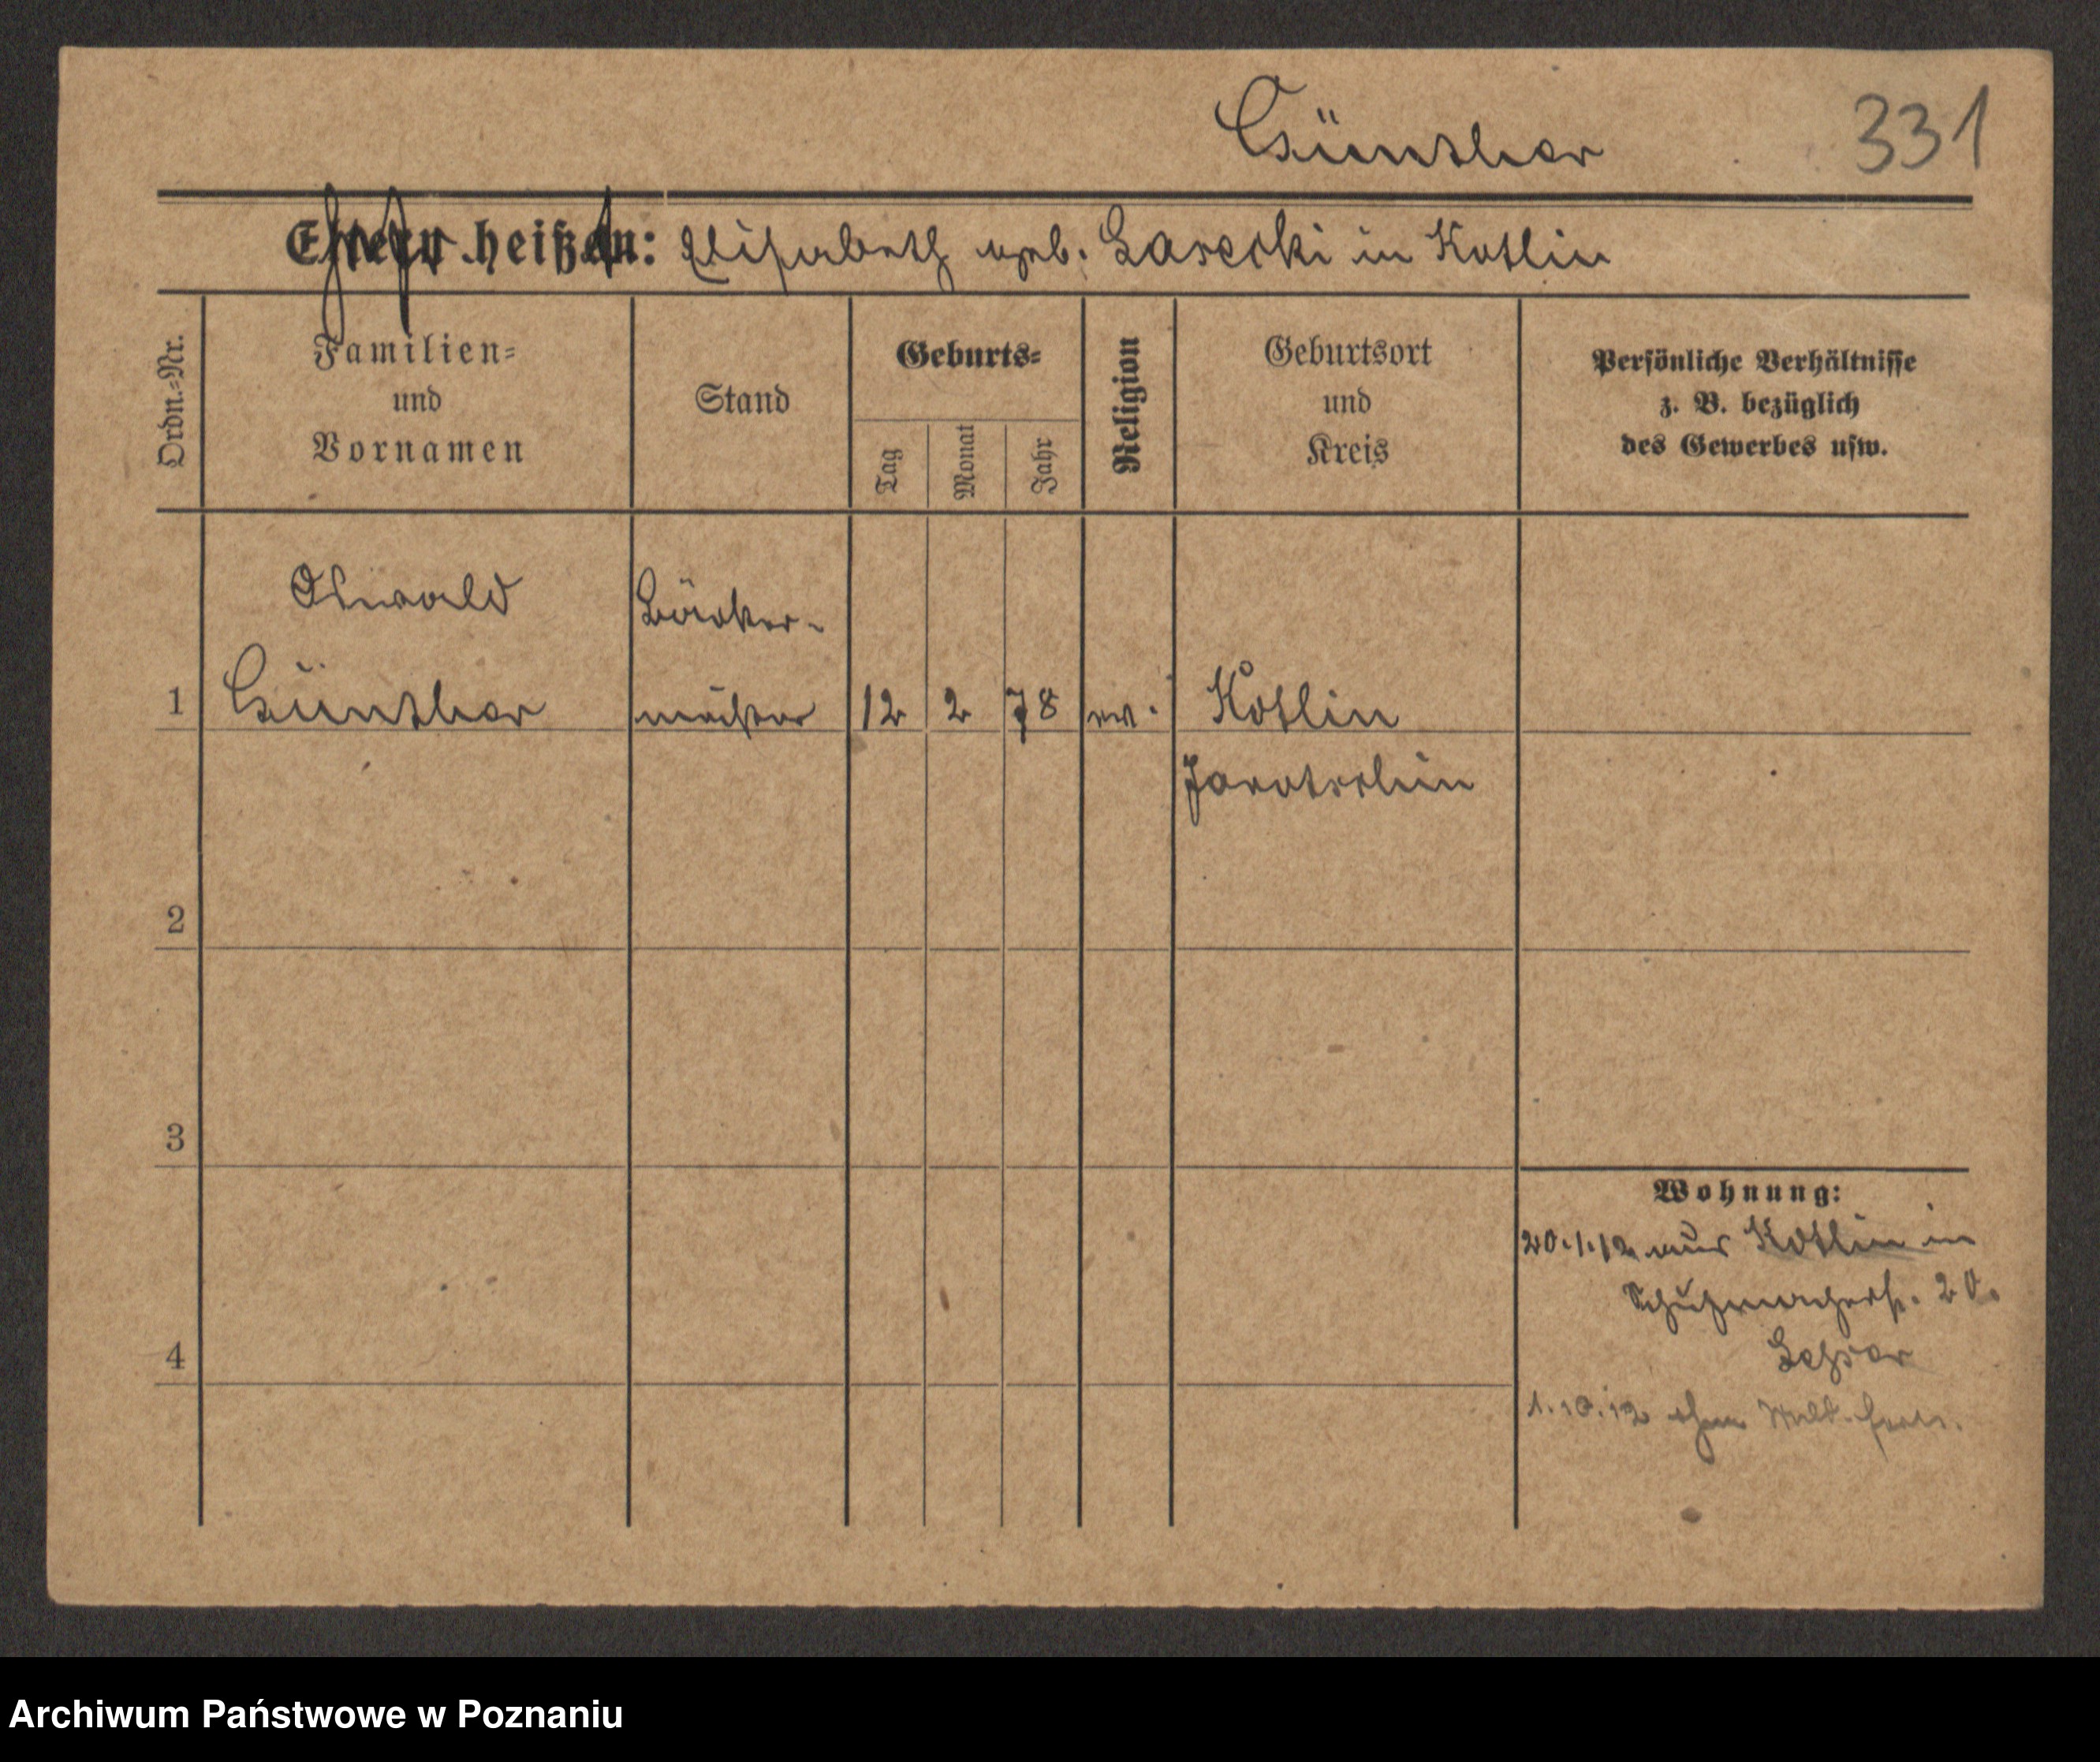 Günther 331
Frau heißt: Elisabeth geb. Larescki in Kotlin
Ordn.-Nr.
Familien-
und
Vornamen
Stand
Geburts-
Tag
Monat
Jahr
Religion
Geburtsort
und
Kreis
Persönliche Verhältnisse
z. B. bezüglich
des Gewerbes usw.
Oswald Bäcker-
1 Günther meister 12 2 78 ev. Kotlin
Jarotschin
2
3
4
Wohnung:
20.1.12 aus Kotlin in
Schuhmacherst. 20.
1.10.12 ohne
Archiwum Państwowe w Poznaniu